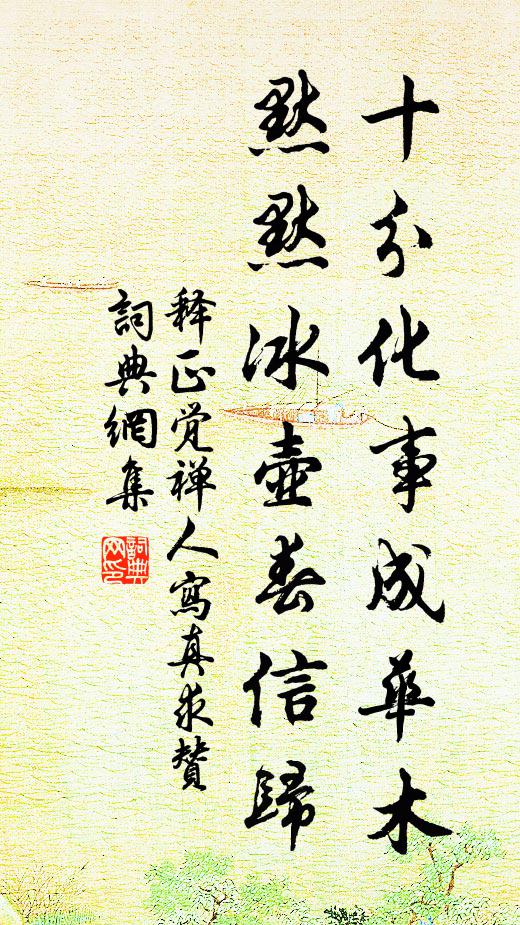 十分化事成華木
默默冰壺春信歸
释正觉禅人寫真求贊
詞典網集
詞典网印